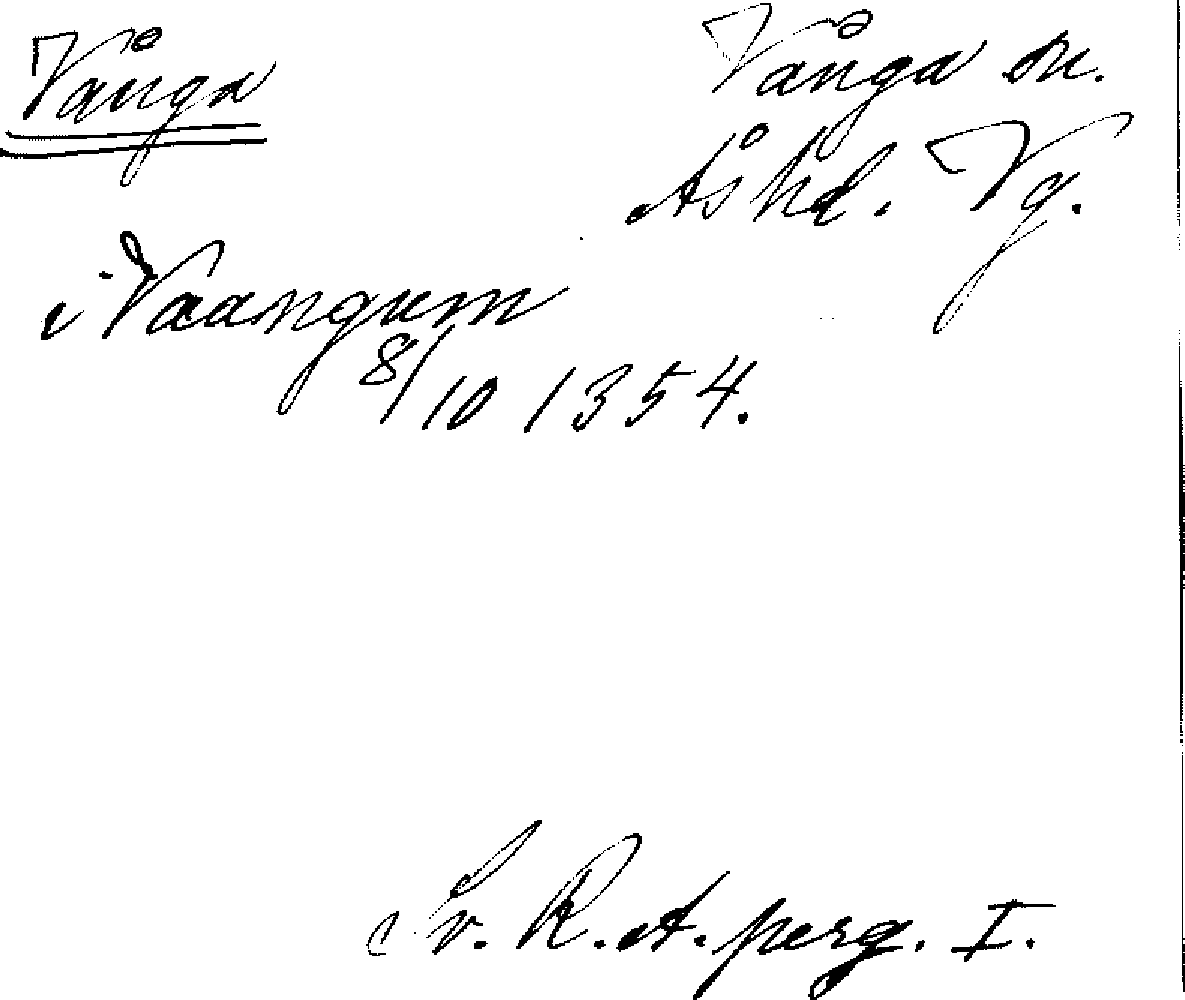 Vånga
Vånga sn.
Ås hd. Vg.
i Vaangum
8/10 1354.
Sv. R. A. perg. I.